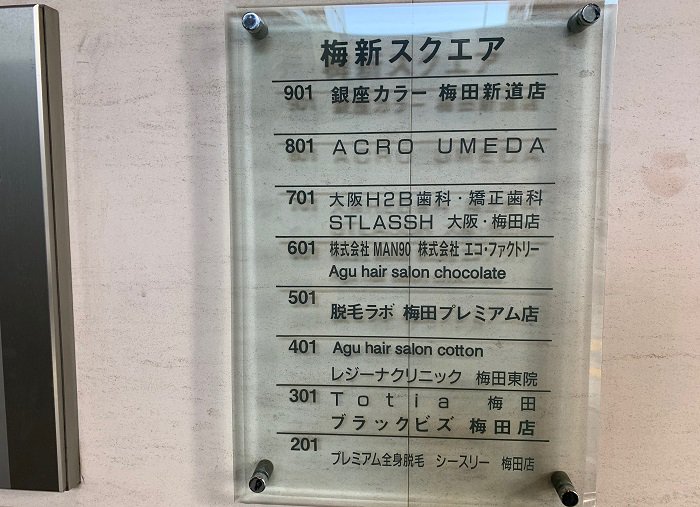 梅新スクエア
901 銀座カラー 梅田新道店
801 ACRO UMEDA
701 大阪H2B歯科・矯正歯科
STLASSH 大阪・梅田店
601 株式会社 MAN90 株式会社 エコ・ファクトリー
Agu hair salon chocolate
501 脱毛ラボ 梅田プレミアム店
401 Agu hair salon cotton
レジーナクリニック 梅田東院
301 Totia 梅田
ブラックビズ 梅田店
201 プレミアム全身脱毛 シースリー 梅田店